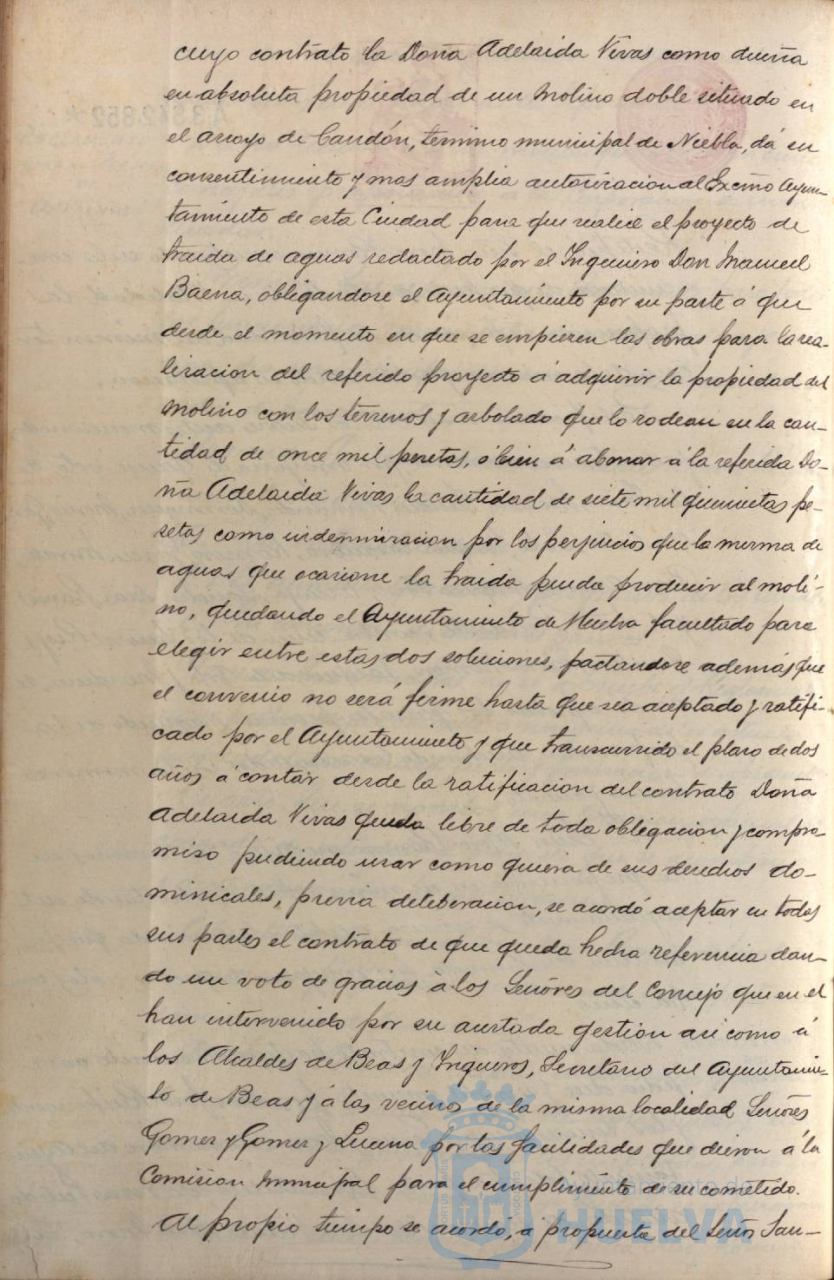 cuyo contrato la Doña Adelaida Vivas como dueña
en absoluta propiedad de un Molino doble situado en
el arroyo de Candón, termino municipal de Niebla, dá su
consentimiento y mas amplia autorizacion al Excmo Ayun-
tamiento de esta Ciudad para que realice el proyecto de
traida de aguas redactado por el Ingeniero Don Manuel
Baena, obligandose el Ayuntamiento por su parte á que
desde el momento en que se empiecen las obras para la rea-
lizacion del referido proyecto á adquirir la propiedad del
Molino con los terrenos y arbolado que lo rodean en la can-
tidad de once mil pesetas, ó bien á abonar á la referida Do-
ña Adelaida Vivas la cantidad de siete mil quinientas pe-
setas como indemnizacion por los perjuicios que la merma de
aguas que ocasione la traida pueda producir al moli-
no, quedando el Ayuntamiento de Huelva facultado para
elegir entre estas dos soluciones, pactandose además que
el convenio no será firme hasta que sea aceptado y ratifi-
cado por el Ayuntamiento y que transcurrido el plazo de dos
años á contar desde la ratificacion del contrato Doña
Adelaida Vivas queda libre de toda obligacion y compro
miso pudiendo usar como quiera de sus derechos do-
minicales, previa deliberacion, se acordó aceptar en todas
sus partes el contrato de que queda hecha referencia dan-
do un voto de gracias á los Señores del Concejo que en el
han intervenido por su acertada gestion asi como á
los Alcaldes de Beas y Trigueros, Secretario del Ayuntamien-
to de Beas y á los vecinos de la misma localidad Señores
Gomez y Gomez y Lucena por las facilidades que dieron á la
Comision Municipal para el cumplimiento de su cometido.
Al propio tiempo se acordó, á propuesta del Señor San-
Ayuntamiento de
HUELVA